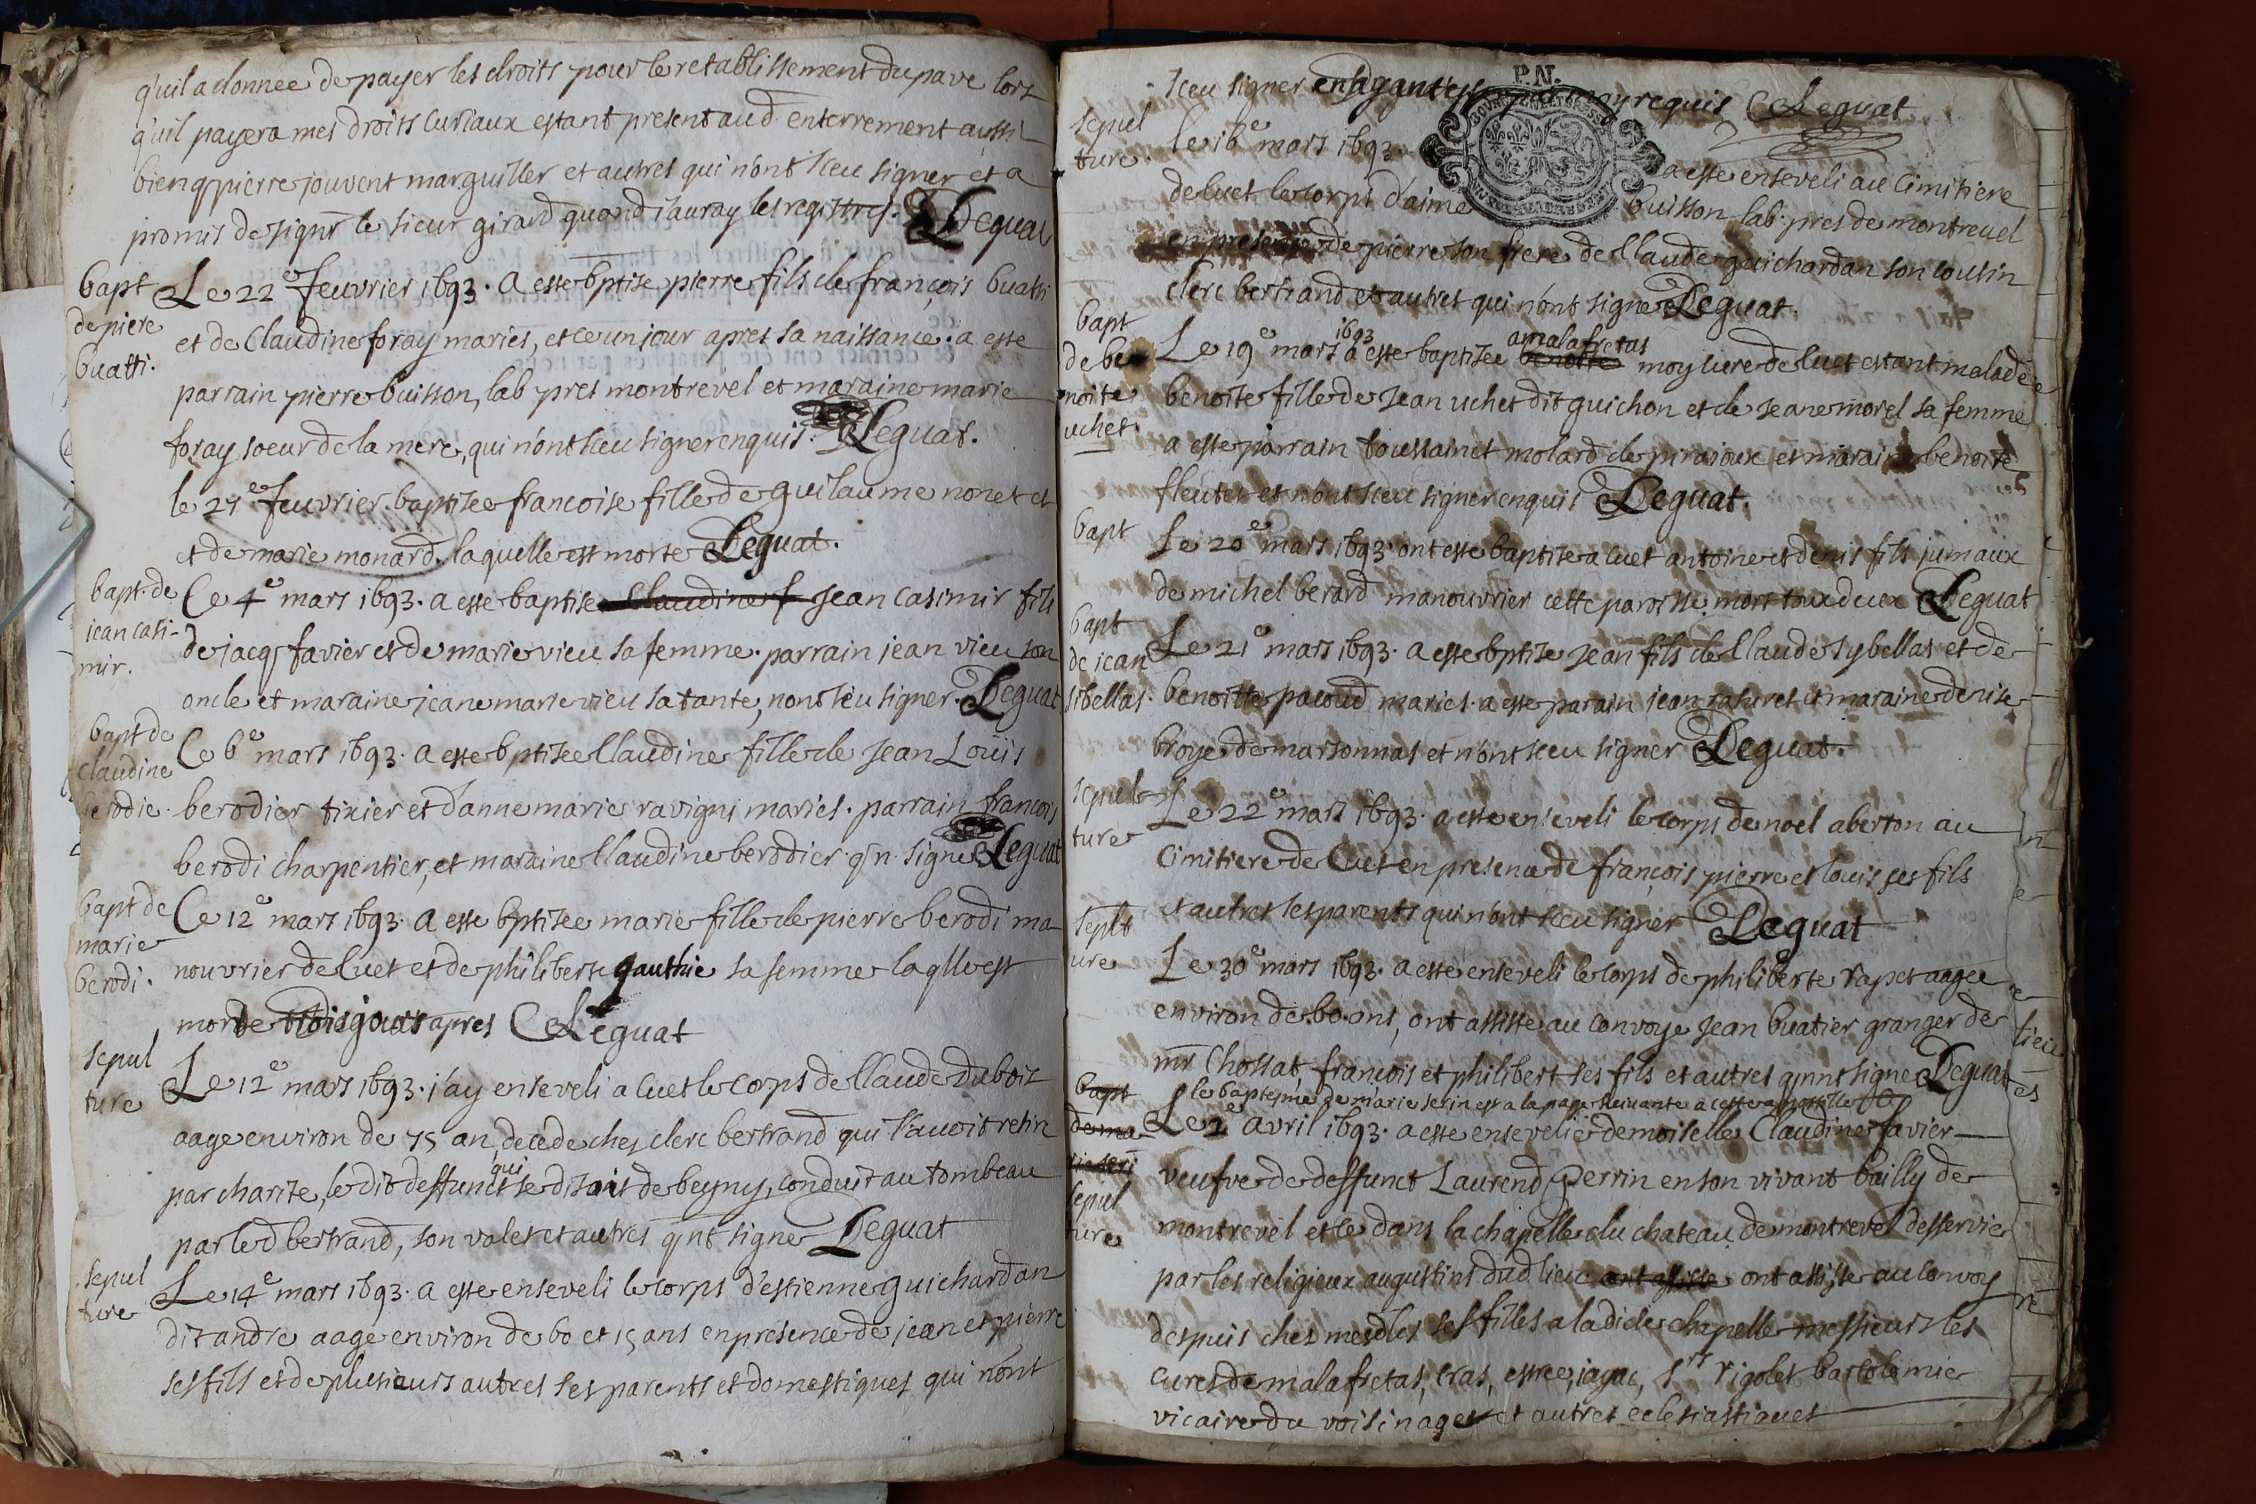 qu'il a donnee de payer les droits pour le retablissement du pave lors
qu'il payera mes droits curiaux estant present aud enterrement aussi
bien q pierre jouvent marguiller et autres qui n'ont sceu signer et a
promis de signer le sieur girard quand j'auray les registres. Leguat
bapt
de piere
buatti.
Le 22e feuvrier 1693. a este bptise pierre fils de françois buatti
et de Claudine foray maries, et ce un jour apres sa naissance. a este
parrain pierre buisson, lab pres montrevel et maraine marie
foray soeur de la mere, qui n'ont sceu signer enquis. Leguat.
le 27e feuvrier baptisee francoise fille de guilaume nonet et
et de marie monard. laquelle est morte Leguat.
bapt. de
jean casi-
mir.
Ce 4e mars 1693. a este baptise Claudine f jean casimir fils
de jacq favier et de marie vieu sa femme. parrain jean vieu son
oncle et maraine jeane marie vieu sa tante, n'ont sceu signer. Leguat
bapt de
claudine
berodie.
Ce 6e mars 1693. a este bptisee Claudine fille de Jean Louis
berodier tixier et d'anne marie ravigni maries. parrain francois
berodi charpentier, et maraine Claudine berodier q n signe Leguat
bapt de
marie
berodi.
Ce 12e mars 1693. a este bptisee marie fille de pierre berodi ma
nouvrier de Cuet et de philiberte gauthie sa femme laqlle est
morte trois jours apres CLeguat
sepul
ture
Le 12e mars 1693. j'ay enseveli a Cuet le corps de Claude Dubois
aage environ de 75 an, decede ches clerc bertrand qui l'avoit retire
par charite, le dit deffunct qui se disoit de beyny, conduit au tombeau
par led bertrand, son valet et autres q nt signe Leguat
sepul
ture
Le 14e mars 1693. a este enseveli le corps d'estienne guichardan
dit andre aage environ de 60 et 15 ans en presence de jean et pierre
ses fils et de plusieurs autres ses parents et domestiques qui n'ont
P.N.
sceu signer requis CLeguat
sepul
ture.
le 16e mars 1693. a este enseveli au Cimitiere
de Cuet le corps d'aime buisson lab. pres de montrevel
en presence de pierre son frere de Claude guichardan son cousin
clerc bertrand et autres qui n'ont signe Leguat.
bapt
de be
noite
uchet.
Le 19e mars 1693 a este baptisee benoite a malafretas moy cure de Cuet estant malade
benoite fille de Jean uchet dit guichon et de Jeane morel sa femme
a este parrain toussainct molard de pirajoux et maraine benoite
fleutet et n'ont sceu signer enquis Leguat.
bapt
Le 20e mars 1693. ont este baptise a Cuet antoine et denis fils jumaux
de michel berard manouvrier cette paroisse. mors tous deux Leguat
bapt
de jean
sibellas.
Le 21e mars 1693. a este bptise Jean fils de Claude sybellas et de
benoitte pacoud maries. a este parain jean et maraine denise
broye de marsonnas et n'ont sceu signer Leguat.
sepul
ture
Le 22e mars 1693. a este enseveli le corps de noel aberton au
Cimitiere de Cuet en presence de françois pierre et louis ses fils
et autres ses parents qui n'ont sceu signer Leguat
sepult
ure
Le 30e mars 1693. a este enseveli le corps de philiberte rapet aagee
environ de 60. ans, ont assiste au convoye Jean buatier granger de
mr Chossat, françois et philibert ses fils et autres q nnt signe Leguat
le baptesme de marie serin est a la page suivante a cette apostille
bapt
de ma
sepul
ture
Le 2e avril 1693. a este ensevelie demoiselle Claudine favier
veufve de deffunct Laurend perrin en son vivant bailly de
montrevel et ce dans la chapelle du chateau de montrevel desservie
par les religieux augustins dud lieu ont assiste ont assiste au convoy
despuis ches mesdles ses filles a ladicte chapelle messieurs les
cures de malafretas, cras, estree, jayac, srs rigolet bartolemie
vicaire du voisinages et autres eclesiastiques